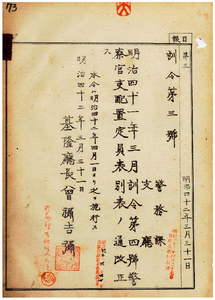 73
報日
第三
明治四十二年三月三十一日
訓令第三號
警務課
支廳
明治四十一年三月訓令第四號警
察官支配置定員表別表ノ通改正
ス
本令ハ明治四十二年四月一日ヨリ之ヲ施行ス
明治四十二年三月三十一日
基隆廳長曾彌吉彌